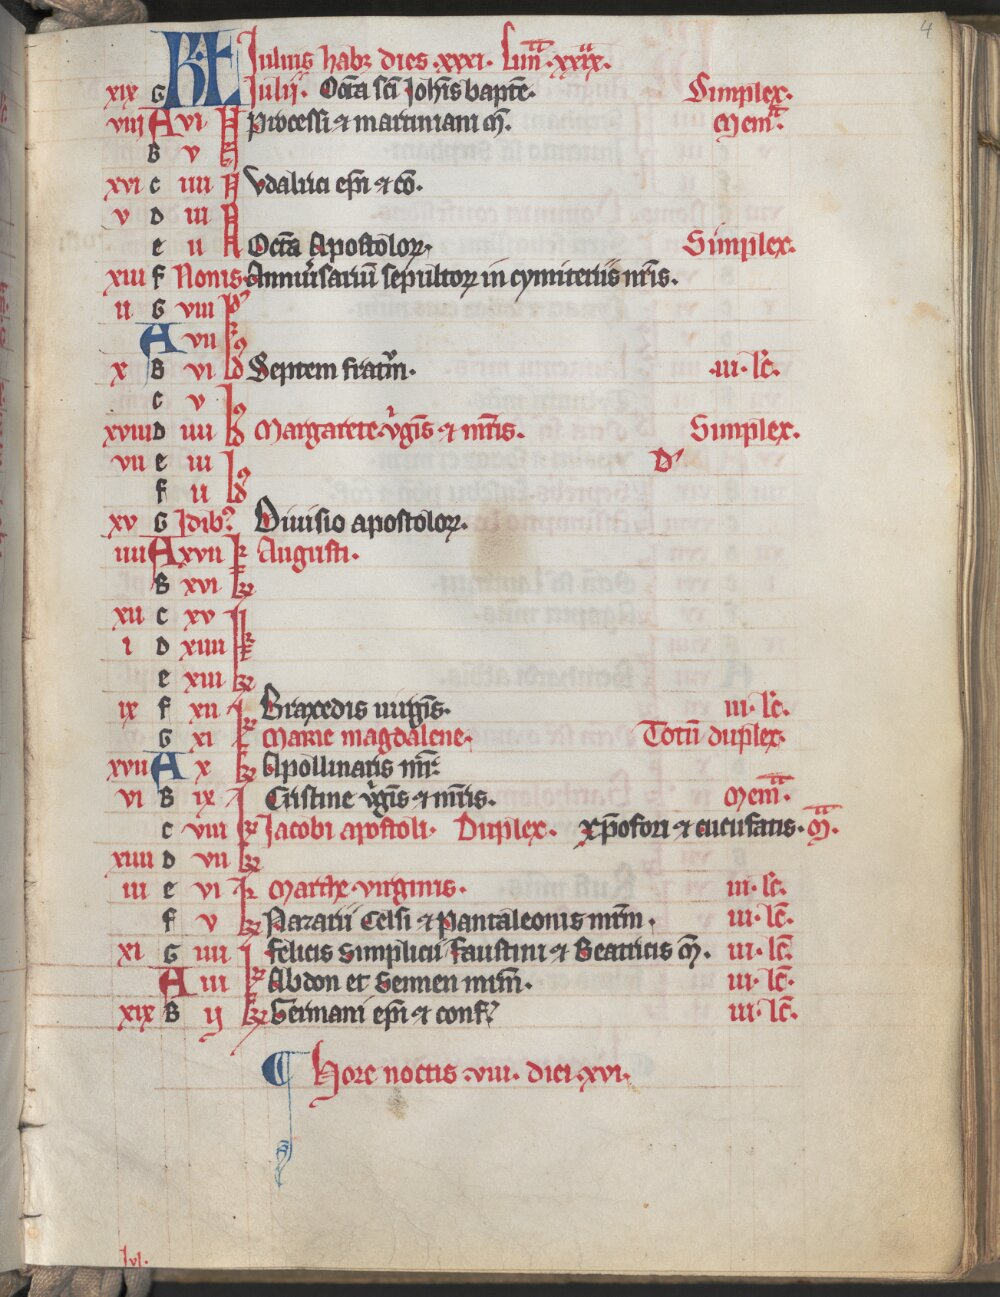 4
KL Iulius habꝫ dies .xxxi. Lun̄ .xxix.
xix G Iulii. Octa͞ sc͞i Ioh͞is bapte͞. Simplex.
viii A vi N Processi ⁊ martiniani m͞. Mem͞.
B v
xvi c iiii N Vdalrici ep͞i ⁊ co͞.
v D iii N
e ii N Octa͞ Apostoloꝝ. Simplex.
xiii f Nonis. Anniu͛sariu͞ sepultoꝝ in cymiteriis nr͞is.
ii G viii
A vii
x B vi Id Septem fratru͞. .iii. lc͞.
c v
xviii D iiii Margarete v͛gi͞s ⁊ mr͞is. Simplex.
vii e iii D᾽
f ii
xv G Idib᾽ Diuisio apostoloꝝ.
iiii A xvii kꝉ Augusti.
B xvi kꝉ
xii c xv
i D xiiii kꝉ
e xiii kꝉ
ix f xii Praxedis uirgi͞s. iii. lc͞.
G xi kꝉ Marie magdalene. Totu͞ duplex
xvii A x kꝉ Apollinaris mr͞
vi B ix Cristine v͛gi͞s ⁊ mr͞is. Mem͞.
c viii kꝉ Iacobi apostoli. Duplex. xp͞ofori ⁊ cucufatis. M͞.
xiiii D vii kꝉ
iii e vi kꝉ Marthe virginis. iii. lc͞.
f v kꝉ Nazarii Celsi ⁊ Pantaleonis mr͞m. iii. lc͞.
xi G iiii Felicis Simplicii Faustini ⁊ Beatricis m͞. iii. lc͞.
A iii kꝉ Abdon et Sennen mr͞m. iii. lc͞.
xix B ij kꝉ Germani ep͞i ⁊ conf͛ iii. lc͞.
Hore noctis .viii. diei .xvi.
Iul.